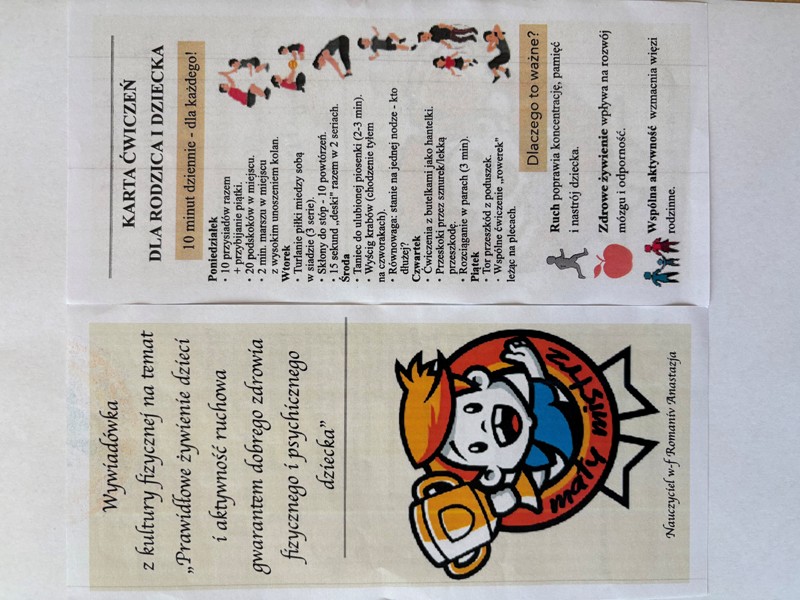 Wywiadówka
z kultury fizycznej na temat
„Prawidłowe żywienie dzieci
i aktywność ruchowa
gwarantem dobrego zdrowia
fizycznego i psychicznego
dziecka”
mały mistrz
Nauczyciel w-f Romaniv Anastazja
KARTA ĆWICZEŃ
DLA RODZICA I DZIECKA
10 minut dziennie - dla każdego!
Poniedziałek
• 10 przysiadów razem
+ przybijanie piątki.
• 20 podskoków w miejscu.
• 2 min. marszu w miejscu
z wysokim unoszeniem kolan.
Wtorek
• Turlanie piłki miedzy sobą
w siadzie (3 serie).
• Skłony do stóp - 10 powtórzeń.
• 15 sekund „deski” razem w 2 seriach.
Środa
• Taniec do ulubionej piosenki (2-3 min).
• Wyścig krabów (chodzenie tyłem
na czworakach).
• Równowaga: stanie na jednej nodze - kto
dłużej?
Czwartek
• Ćwiczenia z butelkami jako hantelki.
• Przeskoki przez sznurek/lekką
przeszkodę.
• Rozciąganie w parach (3 min).
Piątek
• Tor przeszkód z poduszek.
• Wspólne ćwiczenie „rowerek”
leżąc na plecach.
Dlaczego to ważne?
Ruch poprawia koncentrację, pamięć
i nastrój dziecka.
Zdrowe żywienie wpływa na rozwój
mózgu i odporność.
Wspólna aktywność wzmacnia więzi
rodzinne.